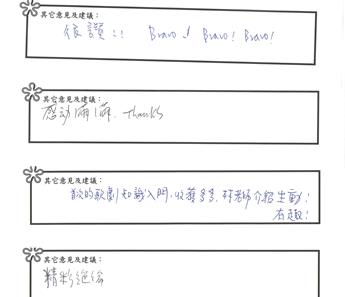 其它意見及建議：
很讚!! Bravo! Bravo! Bravo!
其它意見及建議：
感动满满. Thanks
其它意見及建議：
首次的歌劇知識入門，收穫多多，老師介紹生動！
有趣！
其它意見及建議：
精彩絕倫